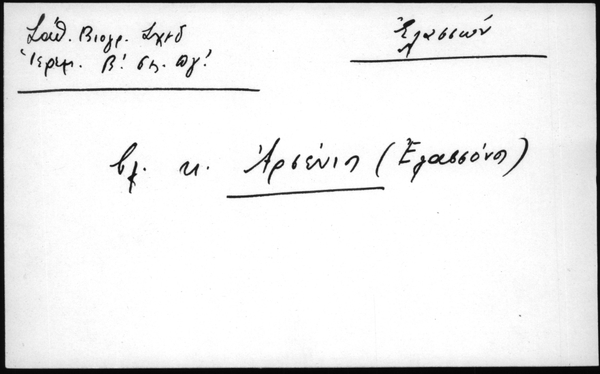 Σάθ. Βιογρ. Σχεδ
Ἱερεμ. Β! σελ. πγ!
Ἐλασσών
βλ. κ. Ἀρσένιος (Ἐλασσόνος)